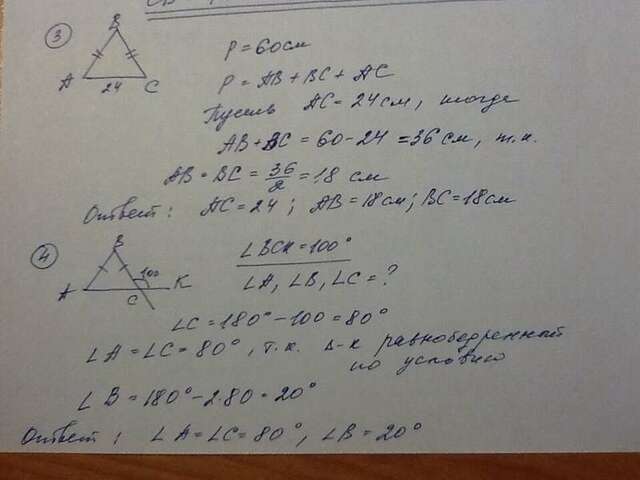 3
B
A 24 C
P = 60 см
P = AB + BC + AC
Пусть AC = 24 см, тогда
AB + BC = 60 - 24 = 36 см, т.к.
AB = BC = 36/2 = 18 см
Ответ: AC = 24; AB = 18 см; BC = 18 см
4
B
100
A C K
∠BCK = 100°
∠A, ∠B, ∠C = ?
∠C = 180° - 100 = 80°
∠A = ∠C = 80°, т.к. Δ-к равнобедренный
по условию
∠B = 180° - 2·80 = 20°
Ответ: ∠A = ∠C = 80°, ∠B = 20°